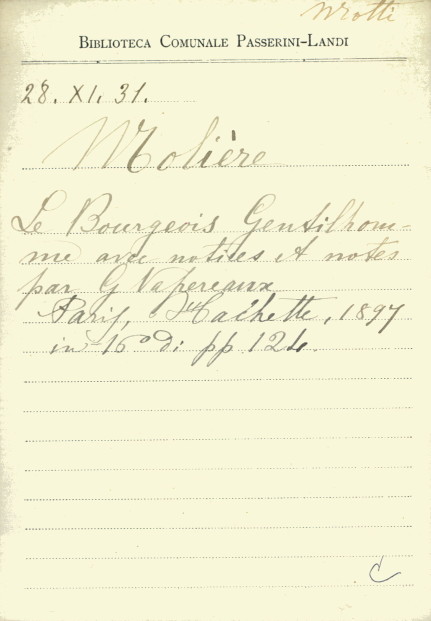 BIBLIOTECA COMUNALE PASSERINI-LANDI
28. XI. 31.
Molière
Le Bourgeois Gentilhom-
me avec notices et notes
par G Vapereaux
Paris, Hachette, 1897
in-16° di pp. 124.
C